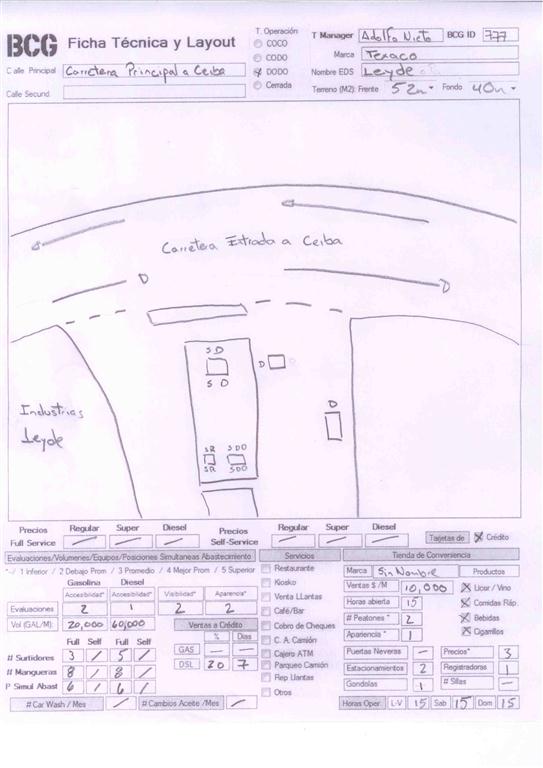 BCG Ficha Técnica y Layout
T. Operación
COCO
CODO
DODO
Cerrada
T Manager Adolfo Nieto BCG ID 777
Marca Texaco
Nombre EDS Leyde
Calle Principal Carretera Principal a Ceiba
Calle Secund.
Terreno (M2): Frente 52m Fondo 40m
Carretera Entrada a Ceiba
D D
S D
S D
D
D
Industrias
Leyde
SR SDO
SR SDO
Precios Regular Super Diesel Precios Regular Super Diesel
Full Service Self-Service
Tarjetas de Crédito
Evaluaciones/Volumenes/Equipos/Posiciones Simultaneas Abastecimiento
*-/ 1 Inferior / 2 Debajo Prom / 3 Promedio / 4 Mejor Prom / 5 Superior
Gasolina Diesel
Accesibilidad* Accesibilidad* Visibilidad* Aparencia*
Evaluaciones 2 1 2 2
Vol (GAL/M): 20,000 60,000 Ventas a Crédito
% Dias
Full Self Full Self GAS — —
# Surtidores 3 / 5 / DSL 20 7
# Mangueras 8 / 8 /
P Simul Abast 6 / 6 /
# Car Wash / Mes / # Cambios Aceite /Mes /
Servicios
Restaurante
Kiosko
Venta LLantas
Café/Bar
Cobro de Cheques
C. A. Camión
Cajero ATM
Parqueo Camión
Rep Llantas
Otros
Tienda de Conveniencia
Marca Sin Nombre Productos
Ventas $ /M 10,000 Licor / Vino
Horas abierta 15 Comidas Ráp.
# Peatones * 2 Bebidas
Apariencia * 1 Cigarrillos
Puertas Neveras — Precios* 3
Estacionamientos 2 Registradoras 1
Gondolas 1 # Sillas —
Horas Oper. L-V 15 Sab 15 Dom 15